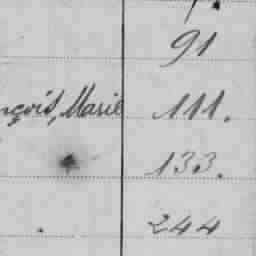 91
nçois, Marie 111.
133.
244